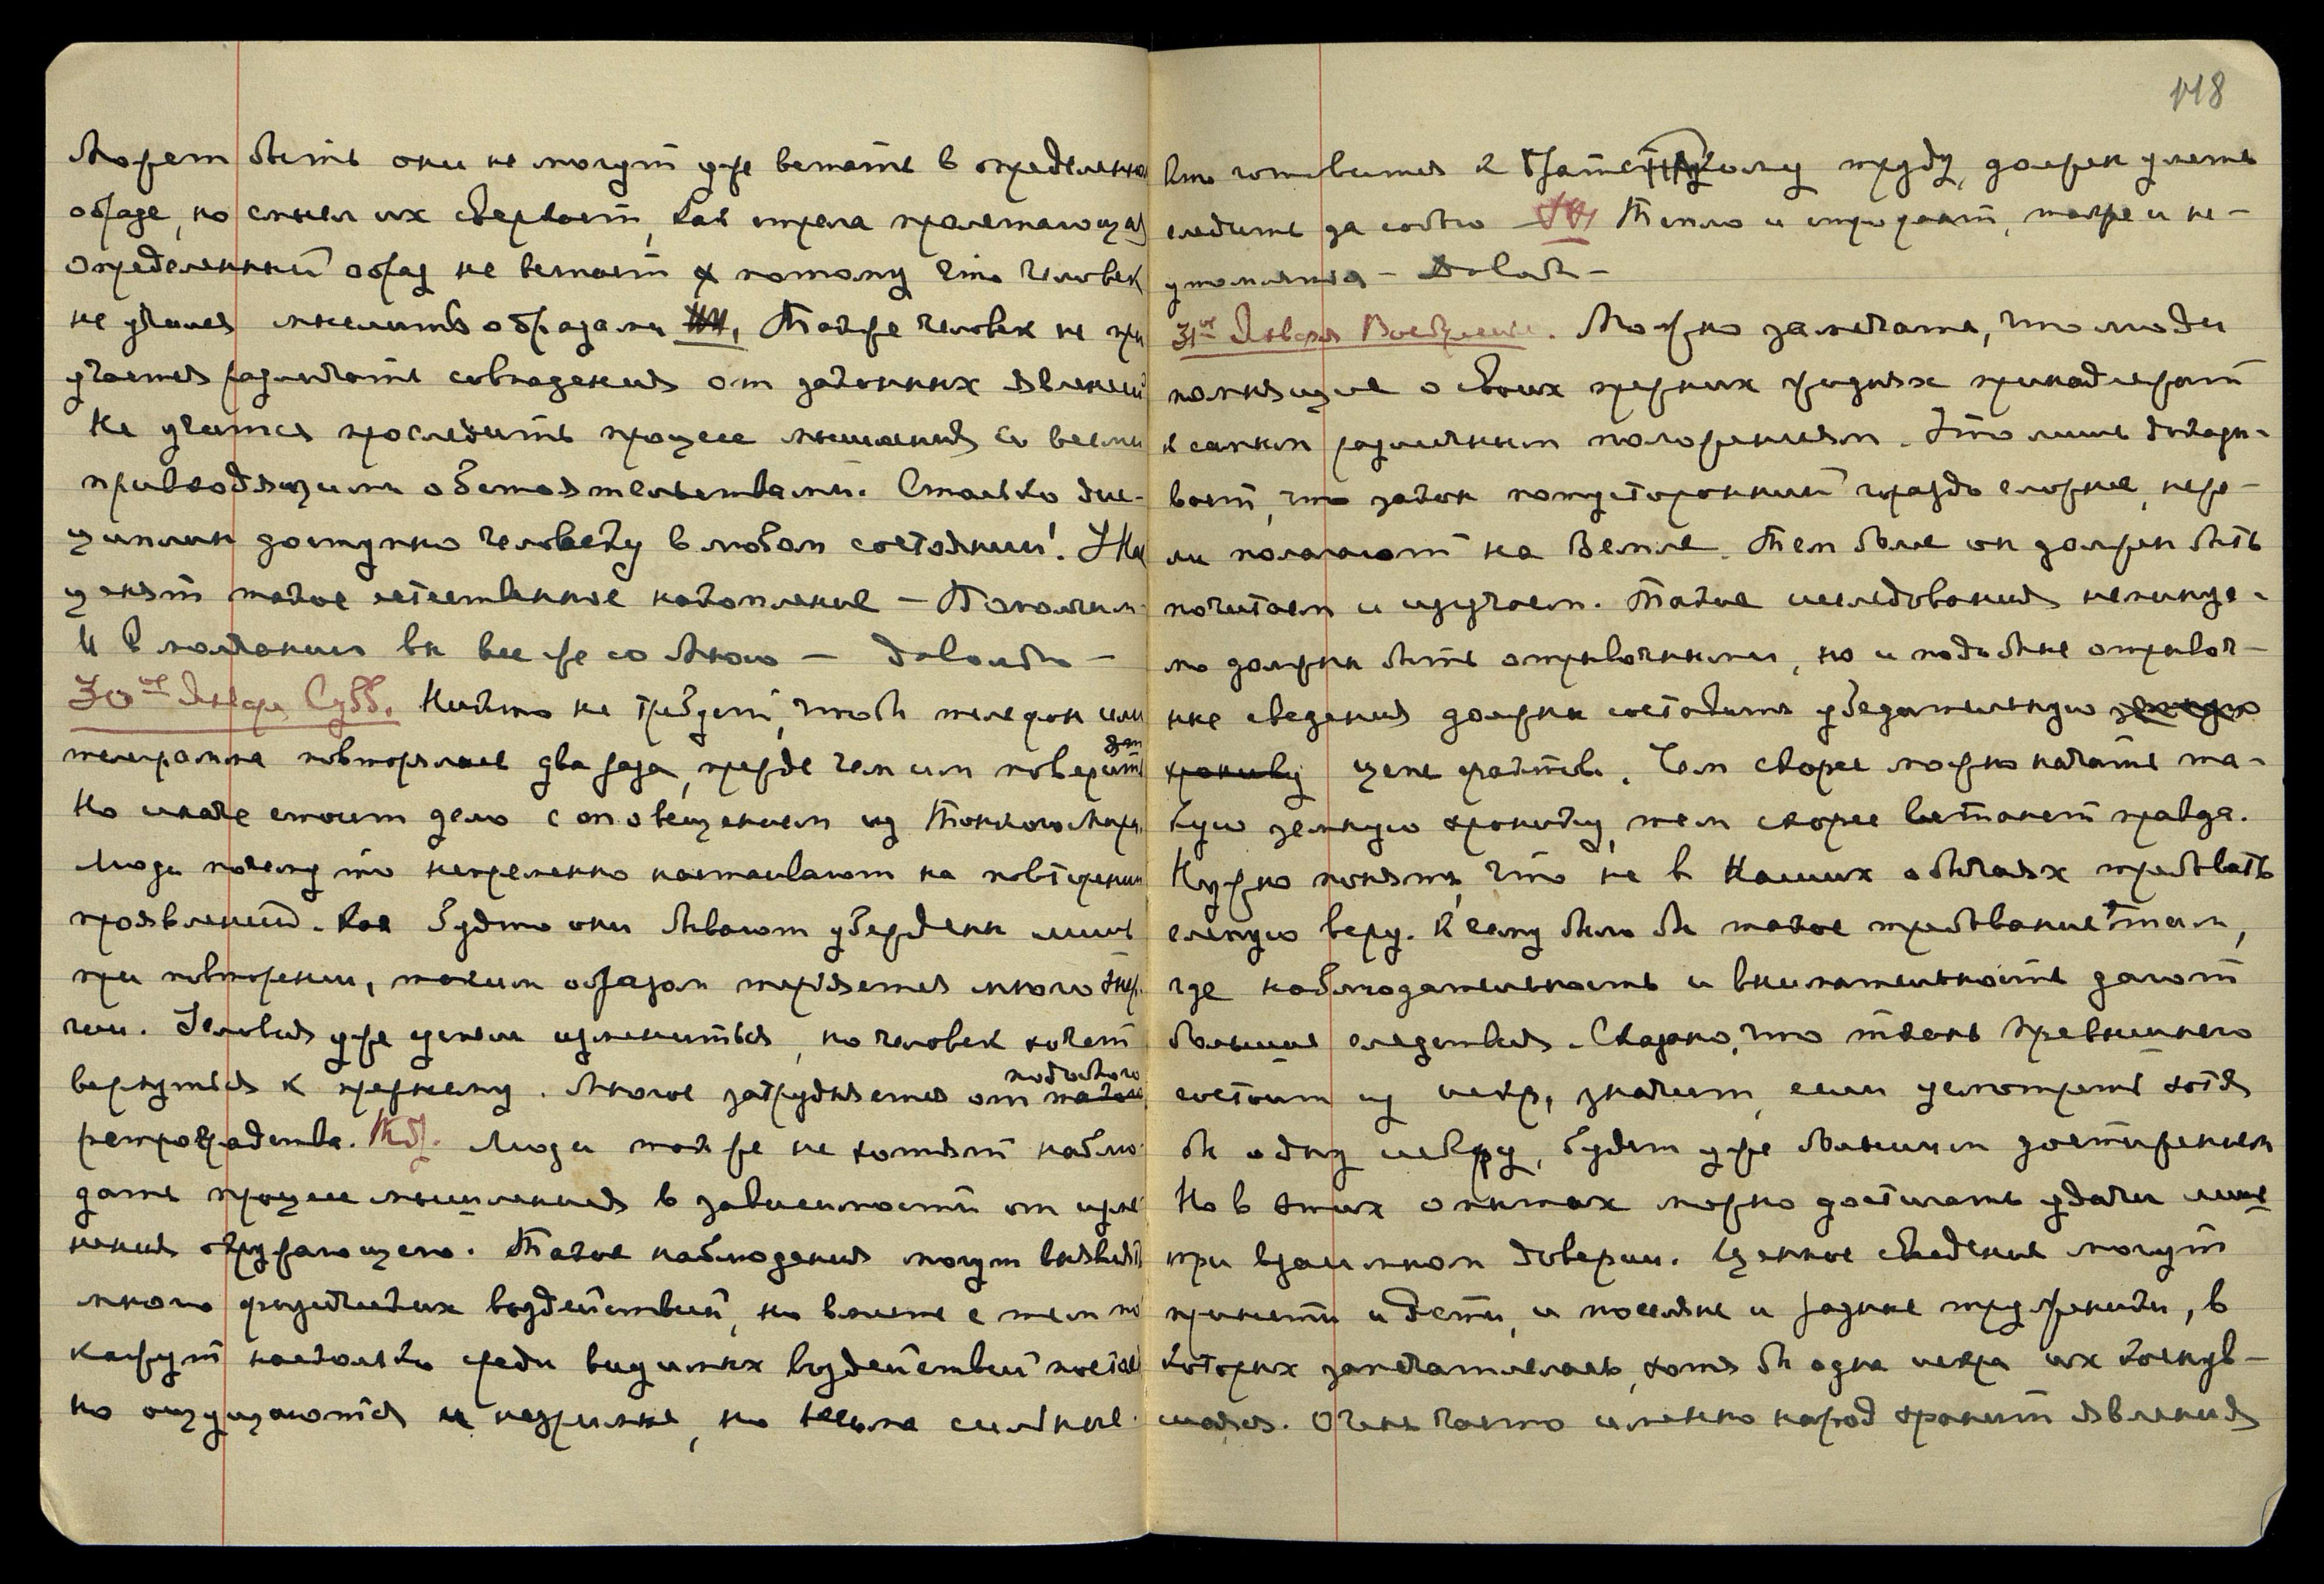 Может быть они не могут уже встать в определенном
образе, но смысл их сверкает, как стрела пролетающая
Определенный образ не встает потому что человек
не учился мыслить образами Также человек не при
учается различать совпадения от законных явлений
Не учится проследить процесс мышления со всеми
привходящими обстоятельствами. Столько дис-
циплин доступно человеку в любом состоянии! У Нас
ценят такое естественное накопление – Помолчим.
И в молчании вы все же со Мною – довольно –
30ое Январ. Субб. Никто не требует, чтобы телефон или
телеграмма повторялись два раза, прежде чем им поверят
Но иначе стоит дело с оповещением из Тонкого Мира.
Люди почему то непременно настаивают на повторении
проявлений. Как будто они бывают убеждены лишь
при повторении, таким образом теряется много энер.
гии. Условия уже успели измениться, но человек хочет
вернуться к прежнему. Многое затрудняется от подобного
ретроградства. Люди также не хотят наблю-
дать процесс мышления в зависимости от изме
нения окружающего. Такие наблюдения могут выявить
много физических воздействий, но вместе с тем по
кажут насколько среди видимых воздействий постоян
но ощущаются и незримые, но весьма сильные.
118
Кто готовится к Братскому труду, должен уметь
следить за собою Тепло и струи дают, также и не-
утомляйся – Довол –
31ое Января Воскресенье. Можно замечать, что люди
помнящие о своих прежних жизнях принадлежат
к самым различным положениям. Это лишь доказы-
вает, что закон потусторонний гораздо сложнее, неже-
ли полагают на Земле. Тем более он должен быть
почитаем и изучаем. Такие исследования неминуе-
мо должны быть отрывочными, но и подобные отрывоч-
ные сведения должны составить убедительную
хронику цепь фактов. Чем скорее можно начать та-
кую земную хронику, тем скорее восстанет правда.
Нужно понять, что не в Наших обычаях требовать
слепую веру. К чему было бы такое требование там,
где наблюдательность и внимательность дают
большие следствия. Сказано, что ткань Превышнего
состоит из искр, значит, если усмотреть хотя
бы одну искру, будет уже большим достижением
Но в этих опытах можно достигать удачи лишь
при взаимном доверии. Ценное сведение могут
принести и дети, и поселяне и разные труженики, в
которых запечатлелась, хотя бы одна искра их коснув-
шаяся. Очень часто именно народ хранит явления